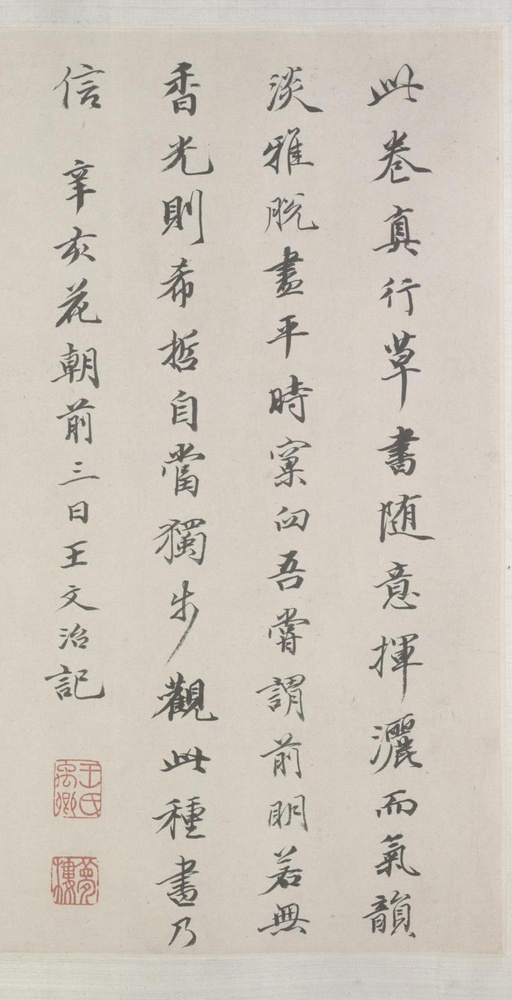 此卷真行草書随意揮灑而氣韻
淡雅脫盡平時窠臼吾嘗謂前明若無
香光則希哲自當獨步觀此種書乃
信 辛亥花朝前三日王文治記
王氏禹卿
夢樓